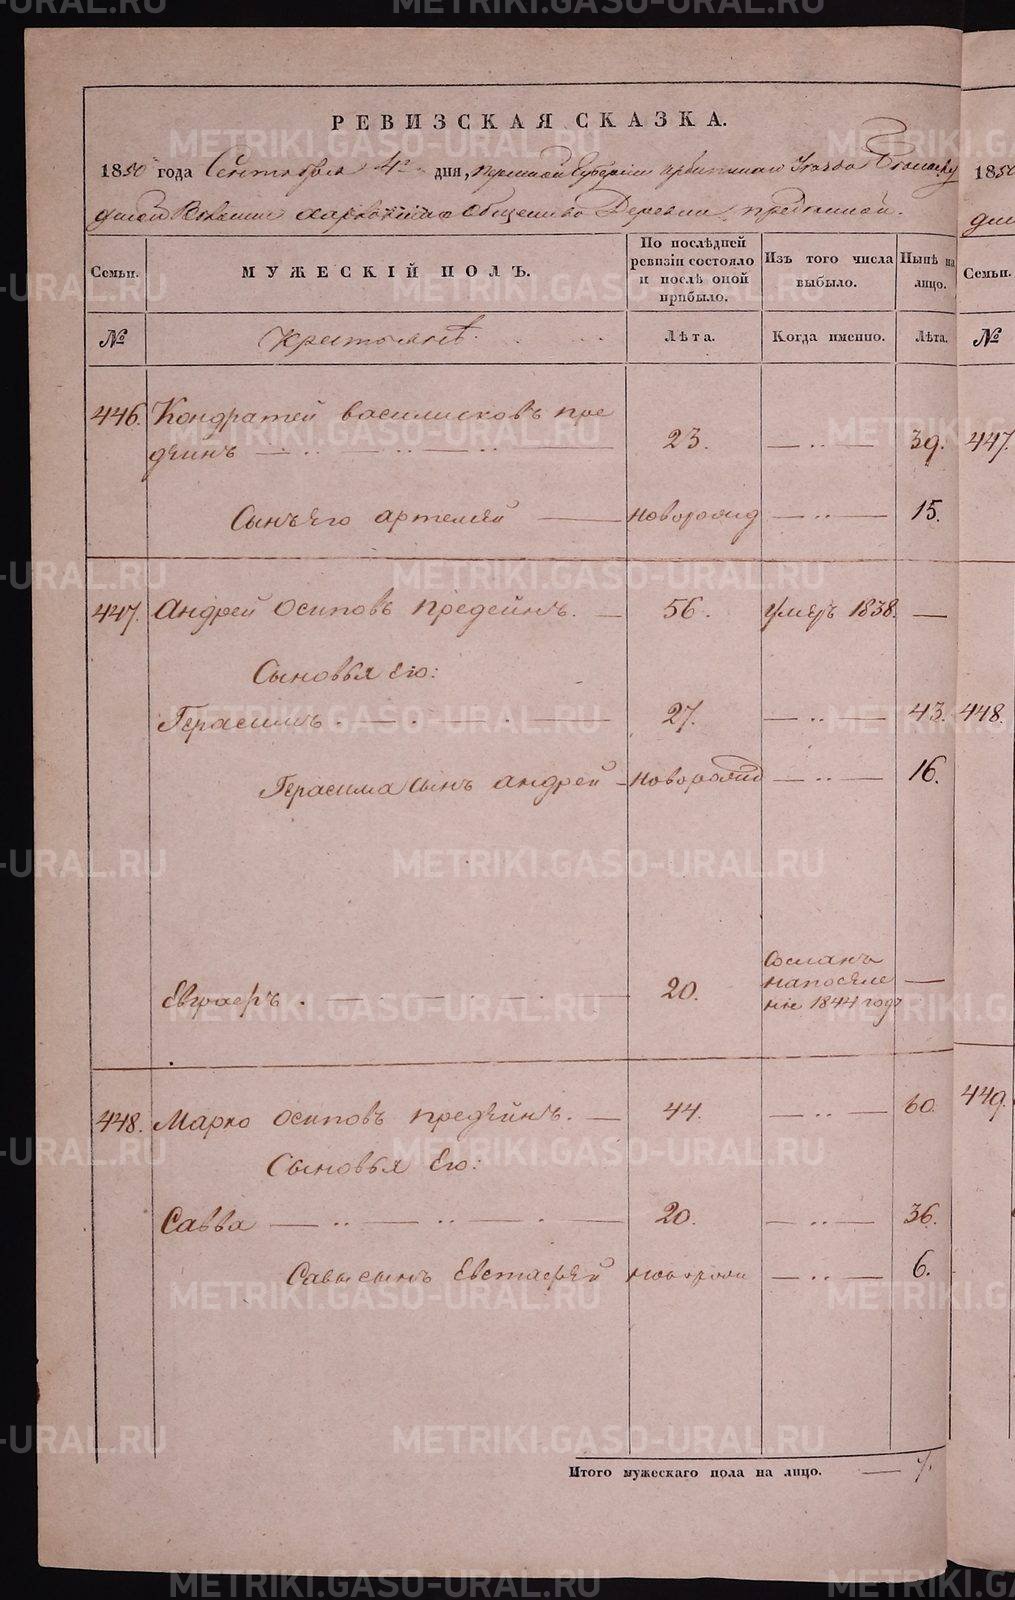 РЕВИЗСКАЯ СКАЗКА.
1850 года Сентября 4го дня, Пермской Губернии Ирбитскаго Уезда
дской Волости Харловскаго Общества Деревни Предѣиной.
Семьи. МУЖЕСКІЙ ПОЛЪ. По послѣдней ревизіи состояло и послѣ оной прибыло. Изъ того числа выбыло. Нынѣ на лицо.
№ Крестьянѣ. Лѣта. Когда именно. Лѣта.
446. Кондратей василисковъ пре
дѣинъ 23. 39.
Сынъ Его артемѣй новорожд 15.
447. Андрей осиповъ предейнъ. 56. умеръ 1838.
Сыновья Его:
Герасимъ 27. 43.
Герасима Сынъ андрей новорожд 16.
Евграфъ 20. Сосланъ
на посѣле
ніе 1844 года
448. Марко осиповъ предѣйнъ. 44. 60.
Сыновья Его:
Савва 20. 36.
Савы сынъ Евстафѣй новорожд 6.
Итого мужескаго пола на лицо. 7.
1850
Семьи.
№
447.
448.
449.
METRIKI.GASO-URAL.RU